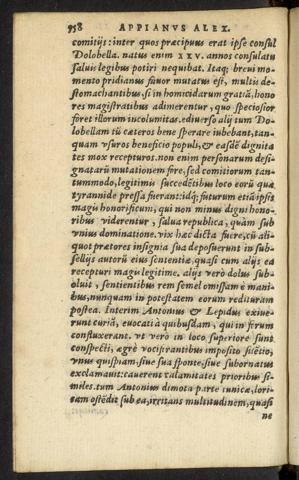 958 APPIANVS ALEX.
comitijs: inter quos præcipuus erat ipse consul
Dolobella. natus enim XXV. annos consulatu
saluis legibus potiri nequibat. Itaq; breui mo-
mento pridianus fauor mutatus est, multis de-
stomachantibus, si in homicidarum gratiā, hono
res magistratibus adimerentur, quo speciosior
foret illorum incolumitas. ediuerso alij tum Do-
lobellam tū cæteros bene sperare iubebant, tan-
quam vsuros beneficio populi, & easdē dignita
tes mox recepturos. non enim personarum desi-
gnatarū mutationem fore, sed comitiorum tan-
tummodo, legitimis succedētibus loco eorū quæ
tyrannide pressa fuerant: idq; futurum etiā ipsis
magis honorificum, qui non minus digni hono-
ribus viderentur, salua republica, quàm sub
vnius dominatione. vix hæc dicta fuere, cū ali-
quot prætores insignia sua deposuerunt in sub-
sellijs autorū eius sententiæ, quasi cum alijs ea
recepturi magis legitime. alijs verò dolus sub-
oluit, sentientibus rem semel omissam è mani-
bus, nunquam in potestatem eorum redituram
postea. Interim Antonius & Lepidus exiue-
runt curiā, euocati à quibusdam, qui in forum
confluxerant. vt verò in loco superiore sunt
conspecti, ægrè vociferantibus imposito silētio,
vnus quispiam, siue sua sponte, siue subornatus
exclamauit: cauerent calamitates prioribus si-
miles. tum Antonius dimota parte tunicæ, lori-
cam ostēdit sub ea, irritans multitudinem, quasi
ne